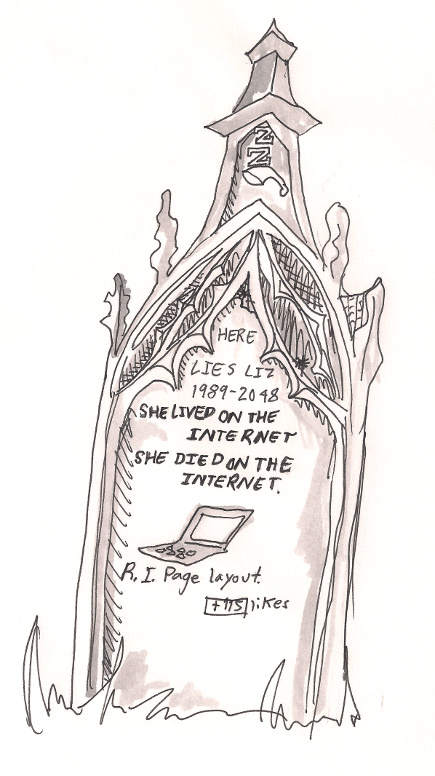 ZZ
HERE
LIES LIZ
1989-2048
SHE LIVED ON THE
INTERNET
SHE DIED ON THE
INTERNET.
R.I. Page layout.
+115 likes